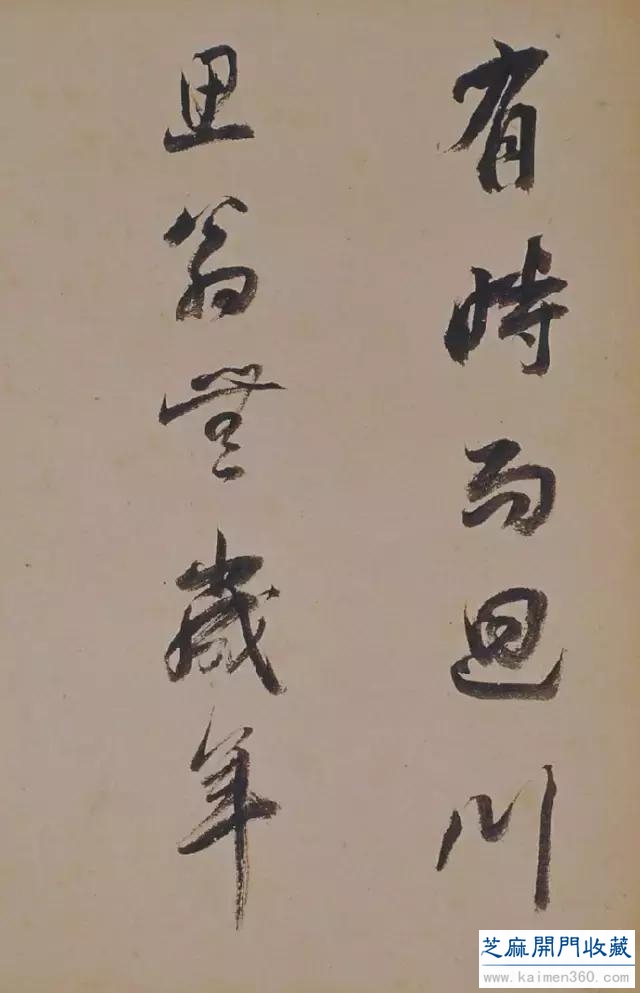 有時而迴川
里翁無歲年
芝麻開門收藏
www.kaimen360.com